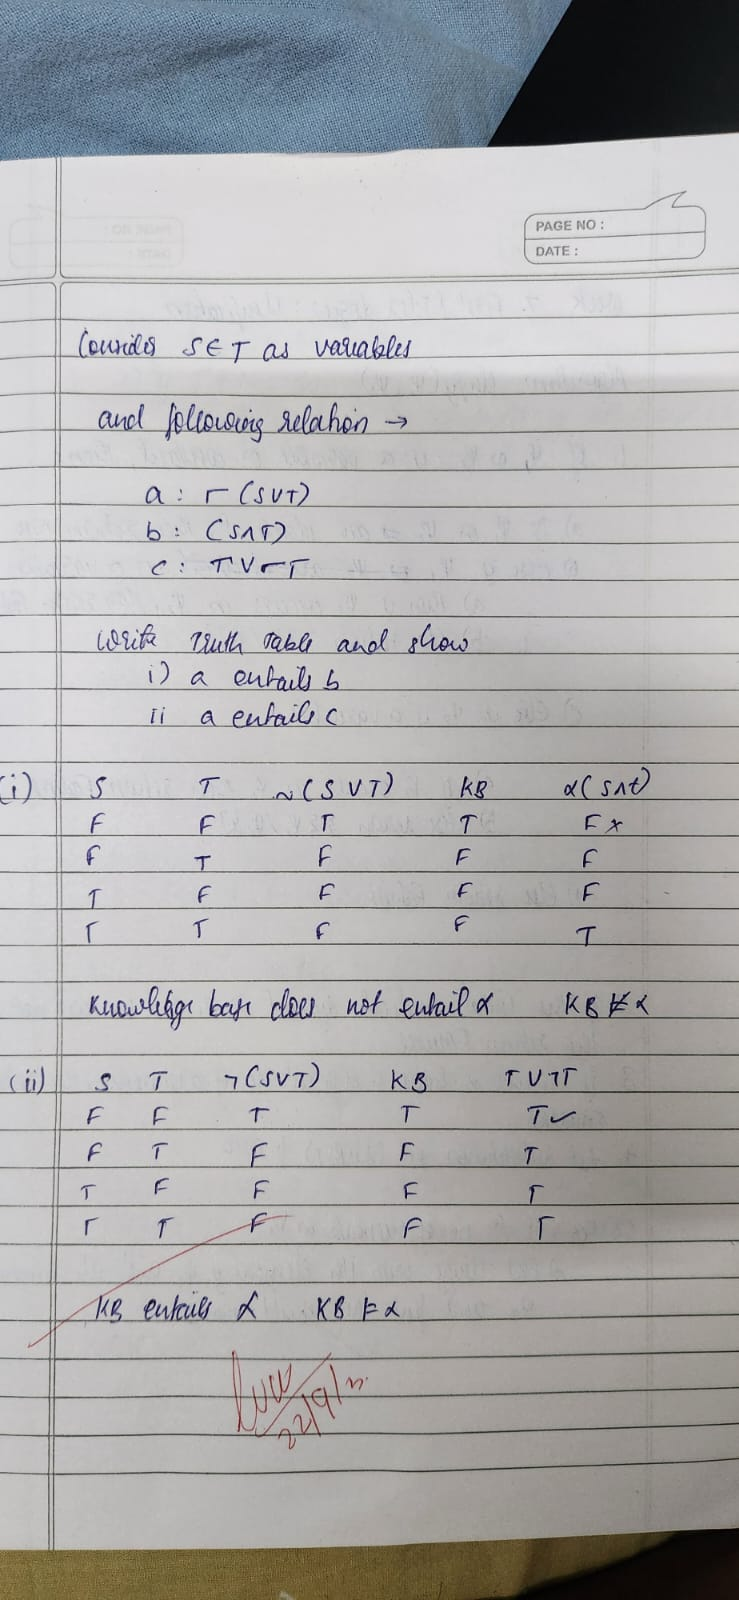 PAGE NO :
DATE :
Consider S & T as variables
and following relation →
a : ¬ (S∨T)
b : (S∧T)
c : T∨¬T
Write Truth Table and show
i) a entails b
ii a entails c
(i) S T ~(S∨T) KB α(S∧t)
F F T T F x
F T F F F
T F F F F
T T F F T
Knowledge base does not entail α KB ⊭ α
(ii) S T ¬(S∨T) KB T∨¬T
F F T T T ✓
F T F F T
T F F F T
T T F F T
KB entails α KB ⊨ α
22/9/